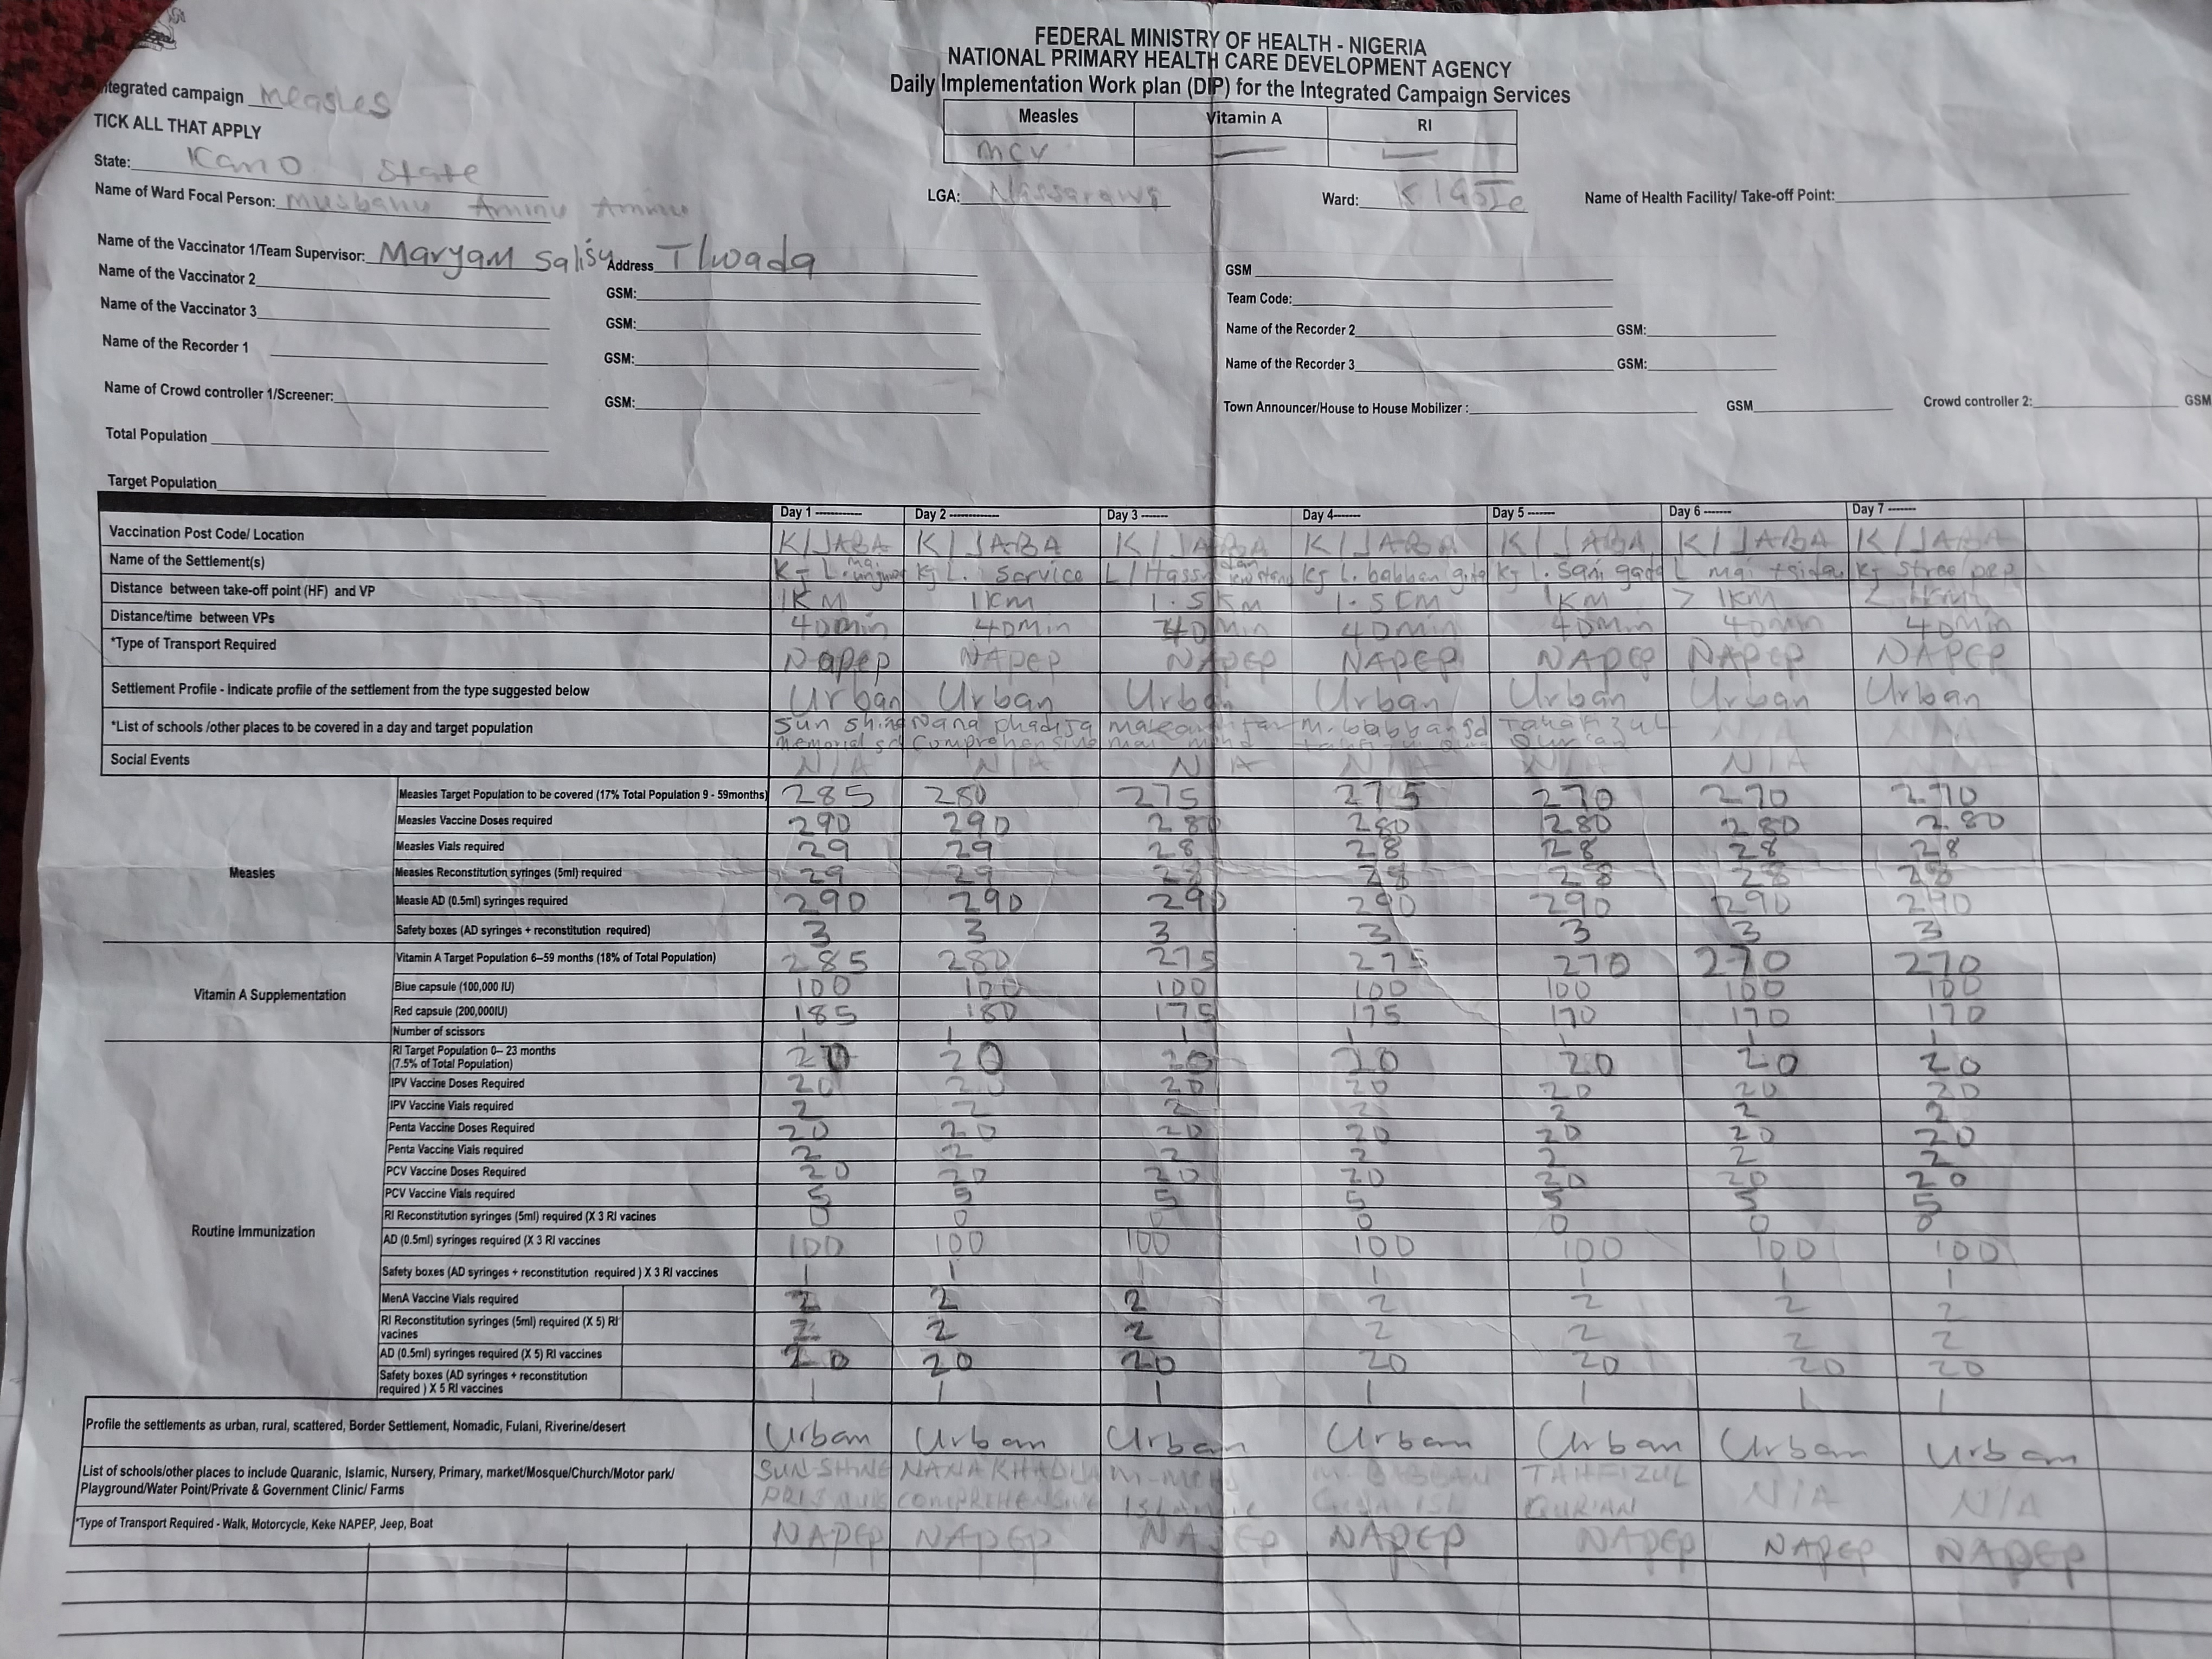 FEDERAL MINISTRY OF HEALTH - NIGERIA
NATIONAL PRIMARY HEALTH CARE DEVELOPMENT AGENCY
Daily Implementation Work plan (DIP) for the Integrated Campaign Services
Integrated campaign Measles
TICK ALL THAT APPLY
Measles Vitamin A RI
mcv
State: Kano State
Name of Ward Focal Person: Musbahu Aminu Aminu LGA: Nassarawa Ward: Name of Health Facility/ Take-off Point:
Name of the Vaccinator 1/Team Supervisor: Maryam Salisu Address GSM
Name of the Vaccinator 2 GSM: Team Code:
Name of the Vaccinator 3 GSM: Name of the Recorder 2 GSM:
Name of the Recorder 1 GSM: Name of the Recorder 3 GSM:
Name of Crowd controller 1/Screener: GSM: Town Announcer/House to House Mobilizer : GSM Crowd controller 2: GSM
Total Population
Target Population
Day 1 Day 2 Day 3 Day 4 Day 5 Day 6 Day 7
Vaccination Post Code/ Location K/JABA K/JABA K/JABA K/JABA K/JABA K/JABA K/JABA
Name of the Settlement(s)
Distance between take-off point (HF) and VP 1KM 1KM 1.5KM 1.5cm 1KM >1KM
Distance/time between VPs 40min 40min 40min 40min 40min 40min 40min
*Type of Transport Required Napep NAPEP NAPEP NAPEP NAPEP NAPEP NAPEP
Settlement Profile - Indicate profile of the settlement from the type suggested below Urban Urban Urban Urban Urban Urban Urban
*List of schools /other places to be covered in a day and target population Sun shine
Social Events N/A N/A N/A N/A N/A N/A
Measles
Measles Target Population to be covered (17% Total Population 9 - 59months) 285 280 275 275 270 270 270
Measles Vaccine Doses required 290 290 280 280 280 280 280
Measles Vials required 29 29 28 28 28 28 28
Measles Reconstitution syringes (5ml) required 29 29 28 28 28 28 28
Measle AD (0.5ml) syringes required 290 290 290 290 290 290 290
Safety boxes (AD syringes + reconstitution required) 3 3 3 3 3 3 3
Vitamin A Supplementation
Vitamin A Target Population 6–59 months (18% of Total Population) 285 280 275 275 270 270 270
Blue capsule (100,000 IU) 100 100 100 100 100 100 100
Red capsule (200,000IU) 185 180 175 175 170 170 170
Number of scissors 1 1 1 1 1 1 1
Routine Immunization
RI Target Population 0– 23 months (7.5% of Total Population) 20 20 20 20 20 20 20
IPV Vaccine Doses Required 20 20 20 20 20 20 20
IPV Vaccine Vials required 2 2 2 2 2 2 2
Penta Vaccine Doses Required 20 20 20 20 20 20 20
Penta Vaccine Vials required 2 2 2 2 2 2 2
PCV Vaccine Doses Required 20 20 20 20 20 20 20
PCV Vaccine Vials required 5 5 5 5 5 5 5
RI Reconstitution syringes (5ml) required (X 3 RI vacines 0 0 0 0 0 0 0
AD (0.5ml) syringes required (X 3 RI vaccines 100 100 100 100 100 100 100
Safety boxes (AD syringes + reconstitution required ) X 3 RI vaccines 1 1 1 1 1 1
MenA Vaccine Vials required 2 2 2 2 2 2 2
RI Reconstitution syringes (5ml) required (X 5) RI vaccines 2 2 2 2 2 2 2
AD (0.5ml) syringes required (X 5) RI vaccines 20 20 20 20 20 20 20
Safety boxes (AD syringes + reconstitution required ) X 5 RI vaccines 1 1 1 1 1 1 1
Profile the settlements as urban, rural, scattered, Border Settlement, Nomadic, Fulani, Riverine/desert Urban Urban Urban Urban Urban Urban Urban
List of schools/other places to include Quaranic, Islamic, Nursery, Primary, market/Mosque/Church/Motor park/ Playground/Water Point/Private & Government Clinic/ Farms SUNSHINE TAHFIZUL QURAN N/A N/A
*Type of Transport Required - Walk, Motorcycle, Keke NAPEP, Jeep, Boat NAPEP NAPEP NAPEP NAPEP NAPEP NAPEP NAPEP